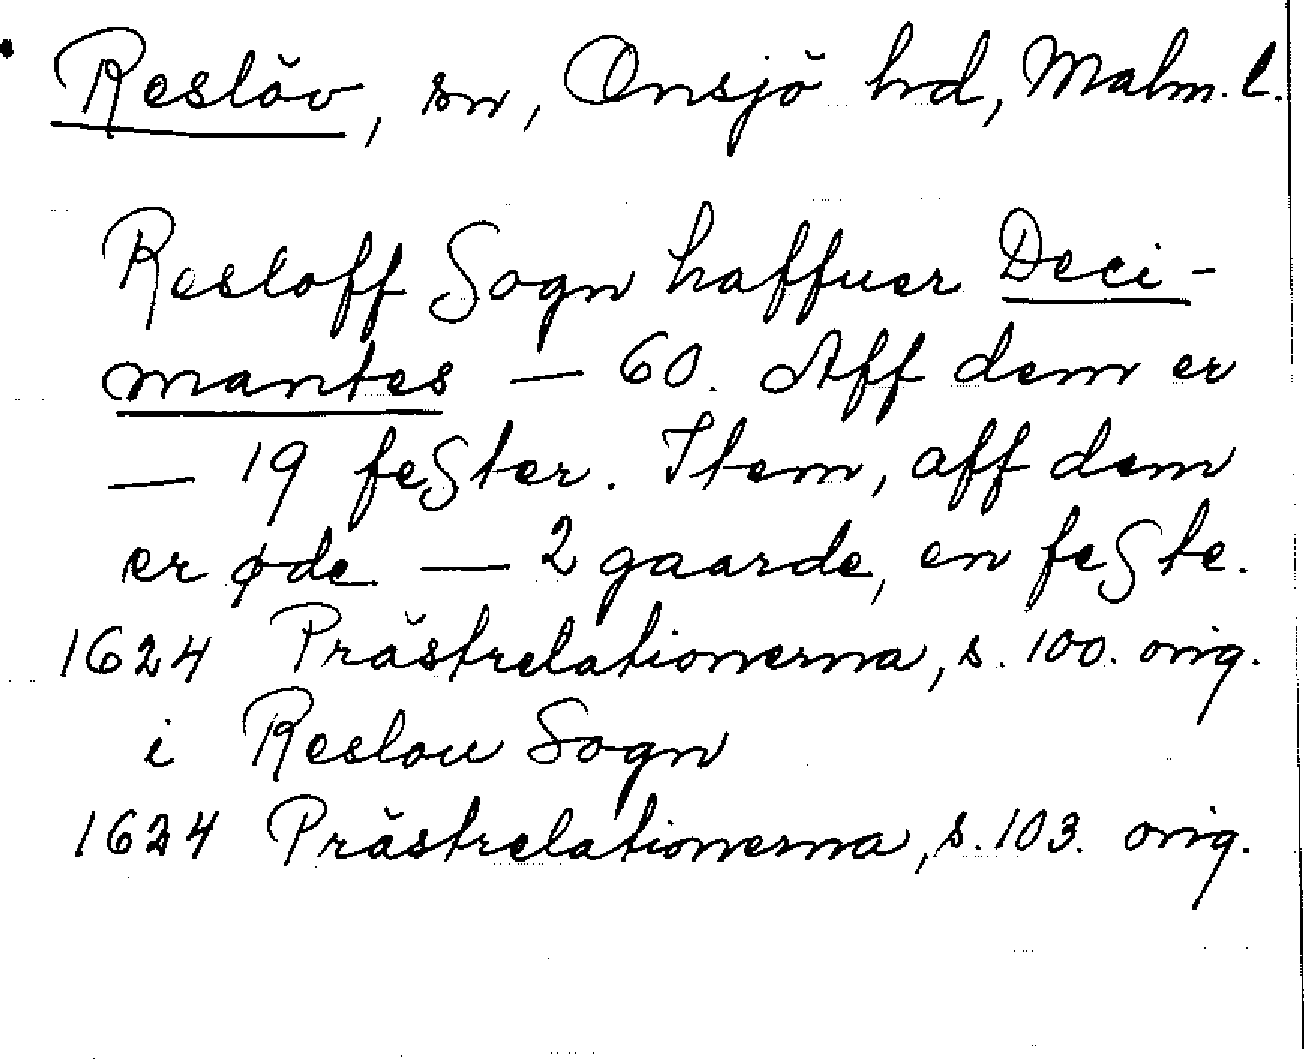 Reslöv, sn, Onsjö hd, Malm. l.
Resloff Sogn haffuer Deci-
mantes — 60. Aff dem er
— 19 feSter. Item, aff dem
er øde — 2 gaarde, en feSte.
1624 Prästrelationerna, s. 100. orig.
i Reslou Sogn
1624 Prästrelationerna, s. 103. orig.